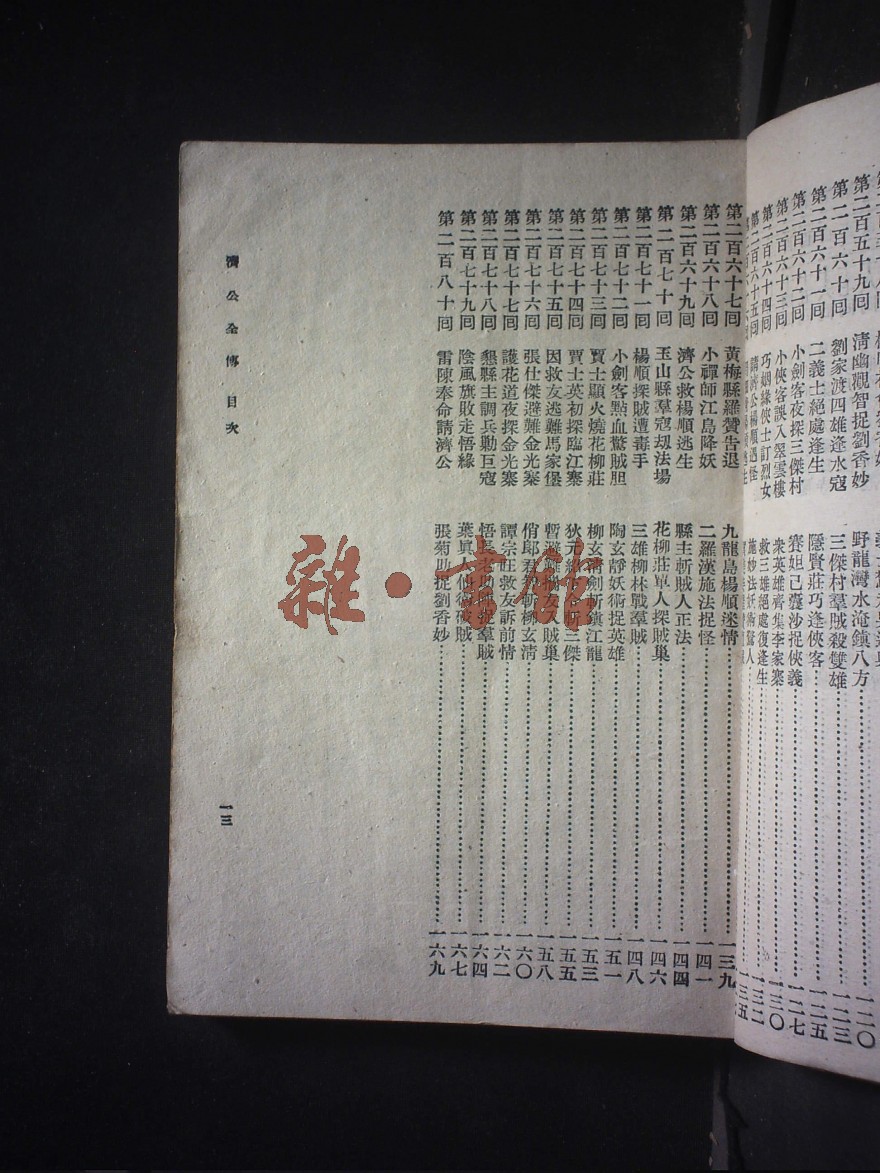 野龍灣水淹鎮八方
第二百五十九回 清幽觀智捉劉香妙 三傑村羣賊殺雙雄 一二三
劉家渡四雄逢水寇 隱賢莊巧逢俠客 一二五
第二百六十一回 二義士絕處逢生 賽妲己囊沙捉俠義 一二七
第二百六十二回 小劍客夜探三傑村 衆英雄齊集李家寨 一三〇
第二百六十三回 小俠客誤入翠雲樓 救三雄絕處復逢生
第二百六十四回 巧姻緣俠士訂烈女 施妙法妖術驚人
第二百六十五回
第二百六十七回 黃梅縣羅贊告退 九龍島楊順迷情 一三九
第二百六十八回 小禪師江島降妖 二羅漢施法捉怪 一四一
第二百六十九回 濟公救楊順逃生 縣主斬賊人正法 一四四
第二百七十回 玉山縣羣寇刧法場 花柳莊單人探賊巢 一四六
第二百七十一回 楊順探賊遭毒手 三雄柳林戰羣賊 一四八
第二百七十二回 小劍客點血驚賊胆 陶玄靜妖術捉英雄 一五一
第二百七十三回 賈士顯火燒花柳莊 柳玄清劍斬鎮江龍 一五三
第二百七十四回 賈士英初探臨江寨 狄元紹下令斬三傑 一五五
第二百七十五回 因救友逃難馬家堡 暫避難 友入賊巢 一五八
第二百七十六回 張仕傑避難金光寨 俏郎君 斬柳玄清 一六〇
第二百七十七回 護花道夜探金光寨 譚宗旺救友訴前情 一六二
第二百七十八回 懇縣主調兵勦巨寇 悟長老助 捉羣賊 一六四
第二百七十九回 陰風旗敗走悟緣 葉眞人仙術破賊 一六七
第二百八十回 雷陳奉命請濟公 張菊助捉劉香妙 一六九
濟公全傳 目次 一三
雜·書館